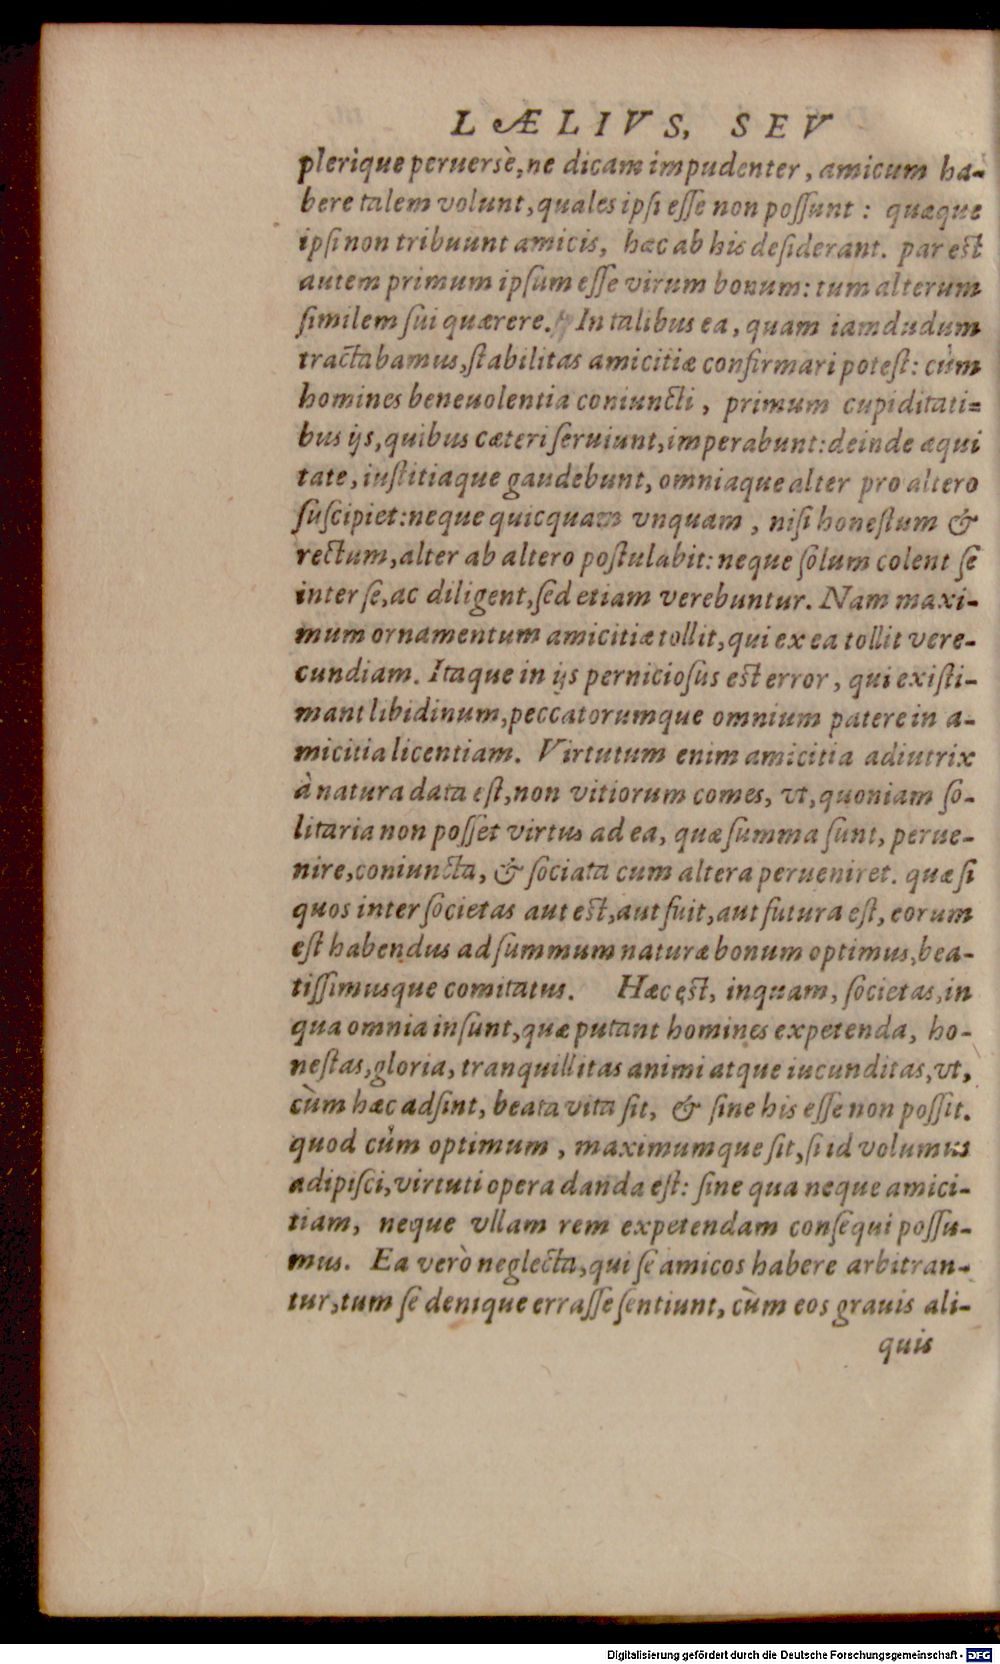 LÆLIVS, SEV
plerique peruersè, ne dicam impudenter, amicum ha-
bere talem volunt, quales ipsi esse non possunt: quæque
ipsi non tribuunt amicis, hæc ab his desiderant. par est
autem primum ipsum esse virum bonum: tum alterum
similem sui quærere. In talibus ea, quam iamdudum
tractabamus, stabilitas amicitiæ confirmari potest: cùm
homines beneuolentia coniuncti, primum cupiditati-
bus ijs, quibus cæteri seruiunt, imperabunt: deinde æqui
tate, iustitiaque gaudebunt, omniaque alter pro altero
suscipiet: neque quicquam vnquam, nisi honestum &
rectum, alter ab altero postulabit: neque solum colent se
inter se, ac diligent, sed etiam verebuntur. Nam maxi-
mum ornamentum amicitiæ tollit, qui ex ea tollit vere-
cundiam. Itaque in ijs perniciosus est error, qui existi-
mant libidinum, peccatorumque omnium patere in a-
micitia licentiam. Virtutum enim amicitia adiutrix
à natura data est, non vitiorum comes, vt, quoniam so-
litaria non posset virtus ad ea, quæ summa sunt, perue-
nire, coniuncta, & sociata cum altera perueniret. quæ si
quos inter societas aut est, aut fuit, aut futura est, eorum
est habendus ad summum naturæ bonum optimus, bea-
tissimusque comitatus. Hæc est, inquam, societas, in
qua omnia insunt, quæ putant homines expetenda, ho-
nestas, gloria, tranquillitas animi atque iucunditas, vt,
cùm hæc adsint, beata vita sit, & sine his esse non possit.
quod cùm optimum, maximumque sit, si id volumus
adipisci, virtuti opera danda est: sine qua neque amici-
tiam, neque vllam rem expetendam consequi possu-
mus. Ea verò neglecta, qui se amicos habere arbitran-
tur, tum se denique errasse sentiunt, cùm eos grauis ali-
quis
Digitalisierung gefördert durch die Deutsche Forschungsgemeinschaft - DFG